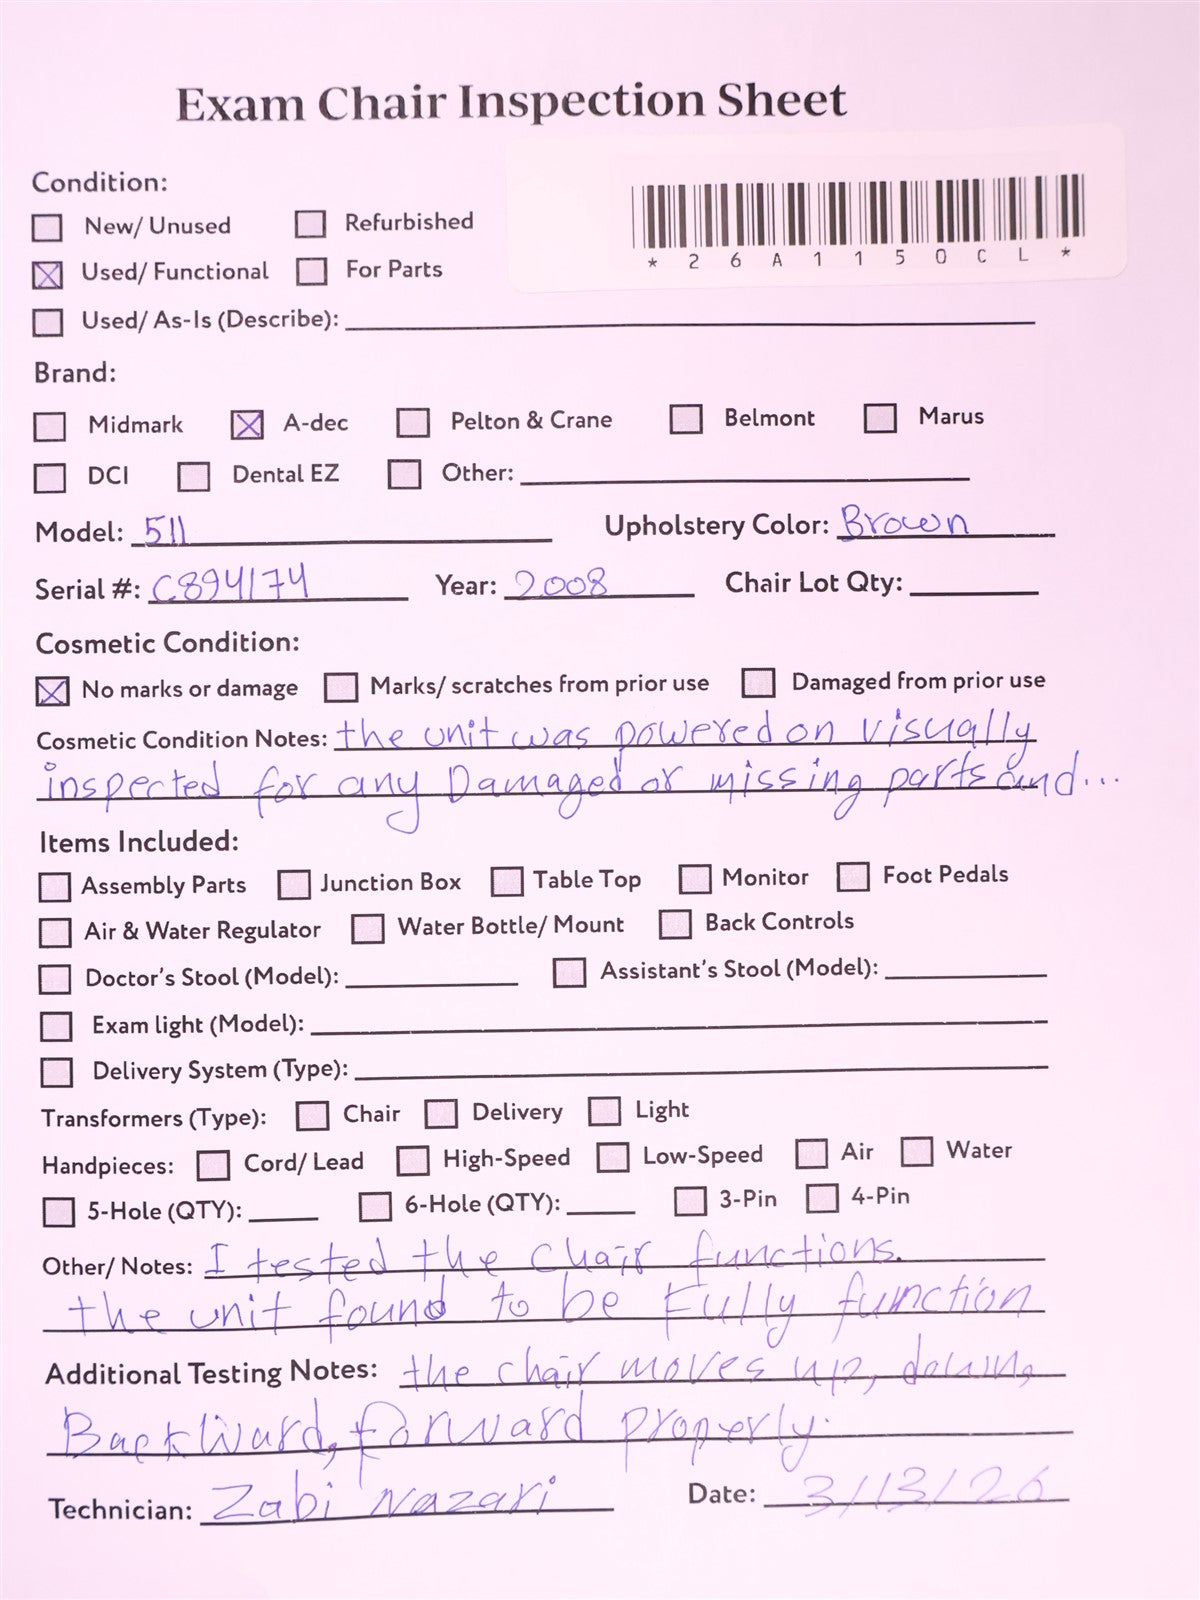 Exam Chair Inspection Sheet
Condition:
New/ Unused Refurbished
*26A1150CL*
Used/ Functional For Parts
Used/ As-Is (Describe):
Brand:
Midmark A-dec Pelton & Crane Belmont Marus
DCI Dental EZ Other:
Model: 511 Upholstery Color: Brown
Serial #: C894174 Year: 2008 Chair Lot Qty:
Cosmetic Condition:
No marks or damage Marks/ scratches from prior use Damaged from prior use
Cosmetic Condition Notes: the unit was powered on visually
inspected for any Damaged or missing parts and...
Items Included:
Assembly Parts Junction Box Table Top Monitor Foot Pedals
Air & Water Regulator Water Bottle/ Mount Back Controls
Doctor's Stool (Model): Assistant's Stool (Model):
Exam light (Model):
Delivery System (Type):
Transformers (Type): Chair Delivery Light
Handpieces: Cord/ Lead High-Speed Low-Speed Air Water
5-Hole (QTY): 6-Hole (QTY): 3-Pin 4-Pin
Other/ Notes: I tested the chair functions.
the unit found to be Fully function
Additional Testing Notes: the chair moves up, down,
Backward, forward properly.
Technician: Zabi Nazari Date: 3/13/26